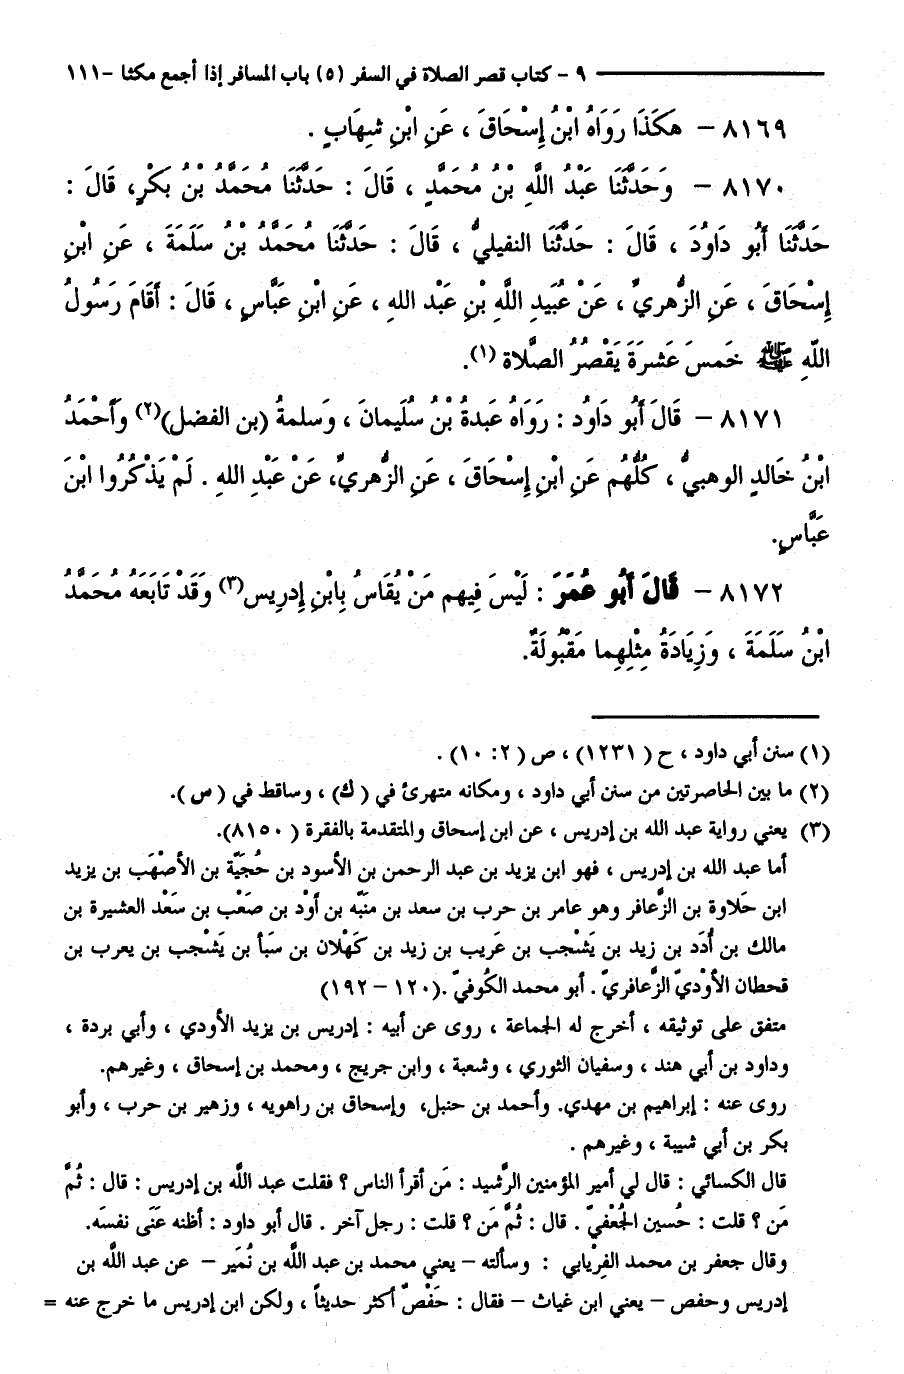 ٩ - كتاب قصر الصلاة في السفر (٥) باب المسافر إذا أجمع مكثا -١١١
٨١٦٩ - هَكَذَا رَوَاهُ ابْنُ إِسْحَاقَ ، عَنِ ابْنِ شِهَابٍ .
٨١٧٠ - وَحَدَّثَنَا عَبْدُ اللَّهِ بْنُ مُحَمَّدٍ ، قَالَ : حَدَّثَنَا مُحَمَّدُ بْنُ بَكْرٍ، قَالَ :
حَدَّثَنَا أَبُو دَاوُدَ ، قَالَ : حَدَّثَنَا النفيليُّ ، قَالَ : حَدَّثَنَا مُحَمَّدُ بْنُ سَلَمَةَ ، عَنِ ابْنِ
إِسْحَاقَ ، عَنِ الزُّهريِّ ، عَنْ عُبَيدِ اللَّهِ بْنِ عَبْد الله ، عَنِ ابْنِ عَبَّاسٍ ، قَالَ : أَقَامَ رَسُولُ
اللَّهِ ﷺ خَمسَ عَشرَةَ يَقْصُرُ الصَّلاة (١).
٨١٧١ - قَالَ أَبُو دَاودَ : رَوَاهُ عَبدةُ بْنُ سُلَيمانَ ، وَسلمةُ (بن الفضل)(٢) وَأَحْمَدُ
ابْنُ خَالدٍ الوهبيُّ ، كُلُّهُم عَنِ ابْنِ إِسْحَاقَ ، عَنِ الزُّهريِّ، عَنْ عَبْدِ الله . لَمْ يَذْكُرُوا ابْنَ
عَبَّاسٍ.
٨١٧٢ - قَالَ أَبُو عُمَرَ : لَيْسَ فِيهم مَنْ يُقَاسُ بِابْنِ إِدرِيس(٣) وَقَدْ تَابَعَهُ مُحَمَّدُ
ابْنُ سَلَمَةَ ، وَزِيَادَةُ مِثْلِهِما مَقْبُولَةٌ.
(١) سنن أبي داود ، ح ( ١٢٣١) ، ص ( ٢: ١٠) .
(٢) ما بين الحاصرتين من سنن أبي داود ، ومكانه متهرئ في ( ك) ، وساقط في ( س ).
(٣) يعني رواية عبد الله بن إدريس ، عن ابن إسحاق والمتقدمة بالفقرة ( ٨١٥٠).
أما عبد الله بن إدريس ، فهو ابن يزيد بن عبد الرحمن بن الأسود بن حُجَيَّة بن الأصْهَب بن يزيد
ابن حَلاوة بن الزَّعافر وهو عامر بن حرب بن سعد بن منَبِّه بن أوْد بن صَعْب بن سَعْد العشيرة بن
مالك بن أُدَد بن زيد بن يَشْجب بن عَريب بن زيد بن كَهْلان بن سَبأ بن يَشْجب بن يعرب بن
قحطان الأوْديّ الزَّعافريّ . أبو محمد الكُوفيّ .(١٢٠ - ١٩٢)
متفق على توثيقه ، أخرج له الجماعة ، روى عن أبيه : إدريس بن يزيد الأودي ، وأبي بردة ،
وداود بن أبي هند ، وسفيان الثوري ، وشعبة ، وابن جريج ، ومحمد بن إسحاق ، وغيرهم.
روى عنه : إبراهيم بن مهدي. وأحمد بن حنبل، وإسحاق بن راهويه ، وزهير بن حرب ، وأبو
بكر بن أبي شيبة ، وغيرهم .
قال الكسائي : قال لي أمير المؤمنين الرَّشيد : مَن أقرأ الناس ؟ فقلت عبد اللَّه بن إدريس : قال : ثُمَّ
مَن ؟ قلت : حُسين الجُعْفيّ . قال : ثُمَّ مَن ؟ قلت : رجل آخر . قال أبو داود : أظنه عَنَى نفسَه.
وقال جعفر بن محمد الفِرْيابي : وسألته - يعني محمد بن عبد اللَّه بن نُمَير - عن عبد اللَّه بن
إدريس وحفص - يعني ابن غياث - فقال : حَفْصٌ أكثر حديثاً ، ولكن ابن إدريس ما خرج عنه =